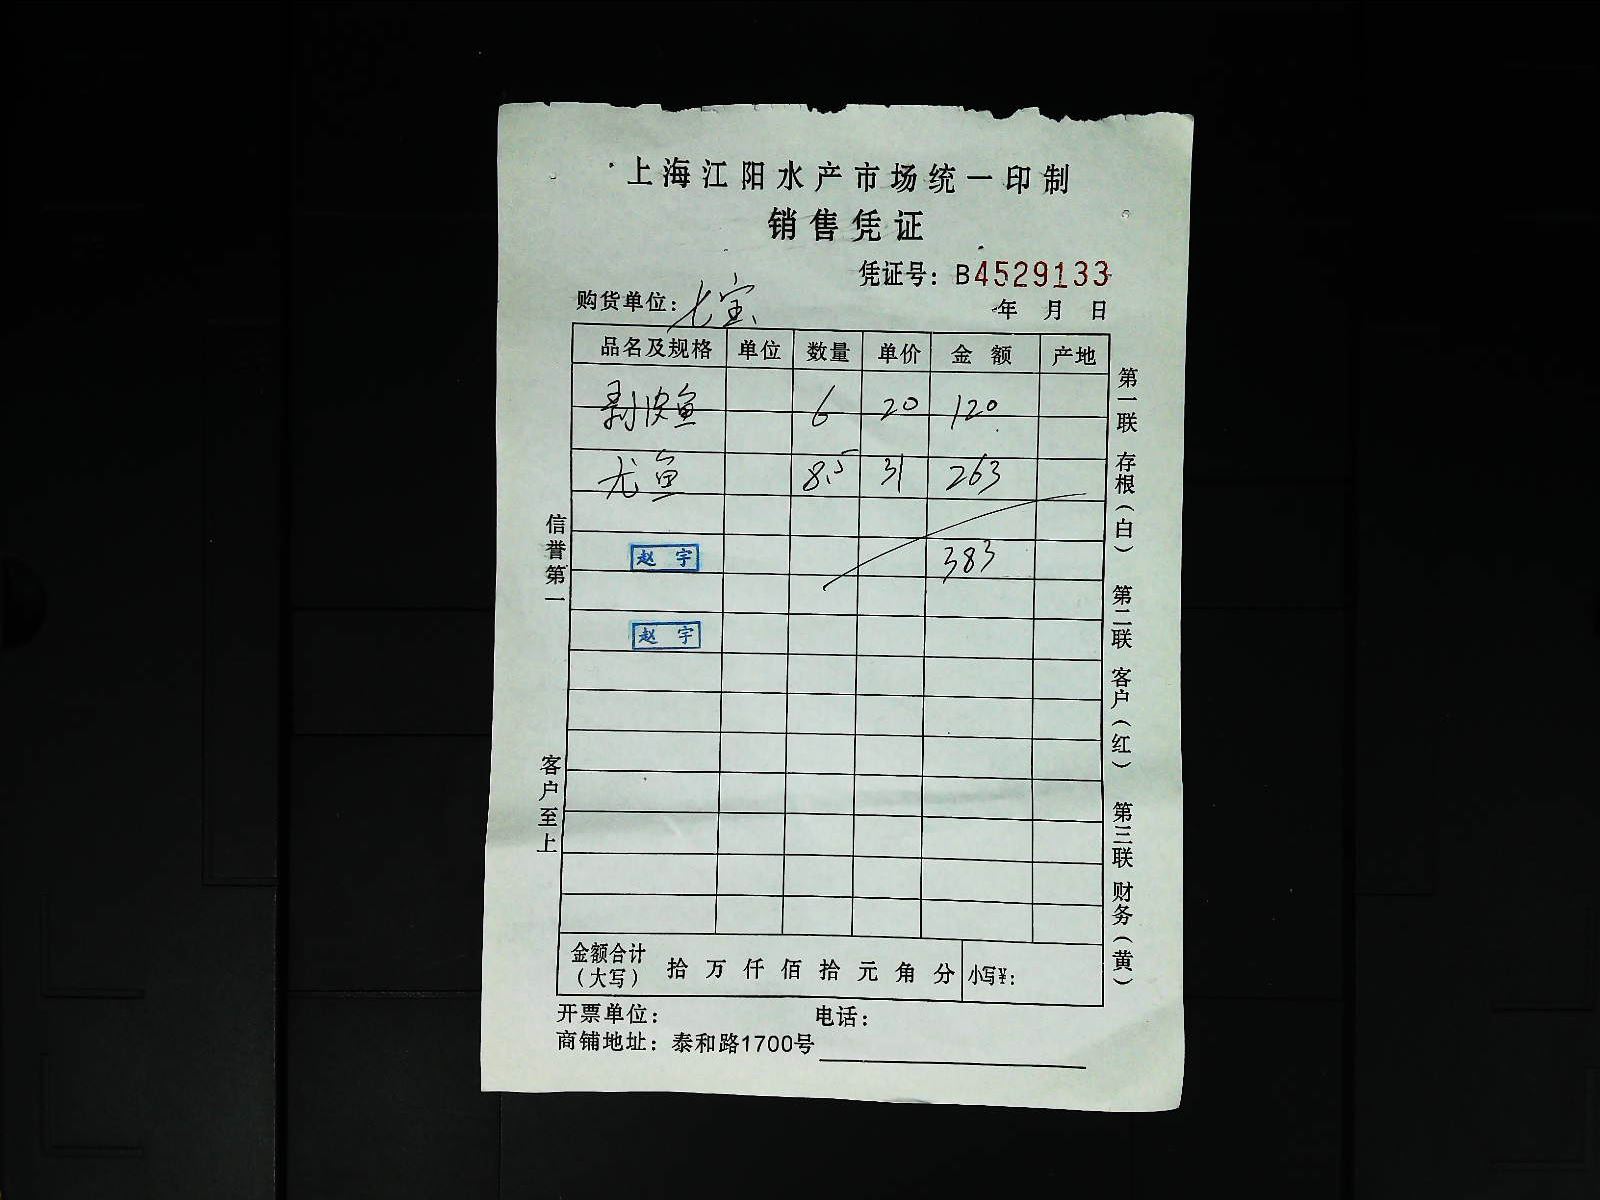 上海江阳水产市场统一印制
销售凭证
凭证号：B4529133
购货单位：七宝
年 月 日
品名及规格 单位 数量 单价 金额 产地
剥皮鱼 6 20 120
尤鱼 8.5 31 263
赵宇 383
赵宇
金额合计（大写） 拾 万 仟 佰 拾 元 角 分 小写¥：
开票单位： 电话：
商铺地址：泰和路1700号
信誉第一
客户至上
第一联 存根（白） 第二联 客户（红） 第三联 财务（黄）